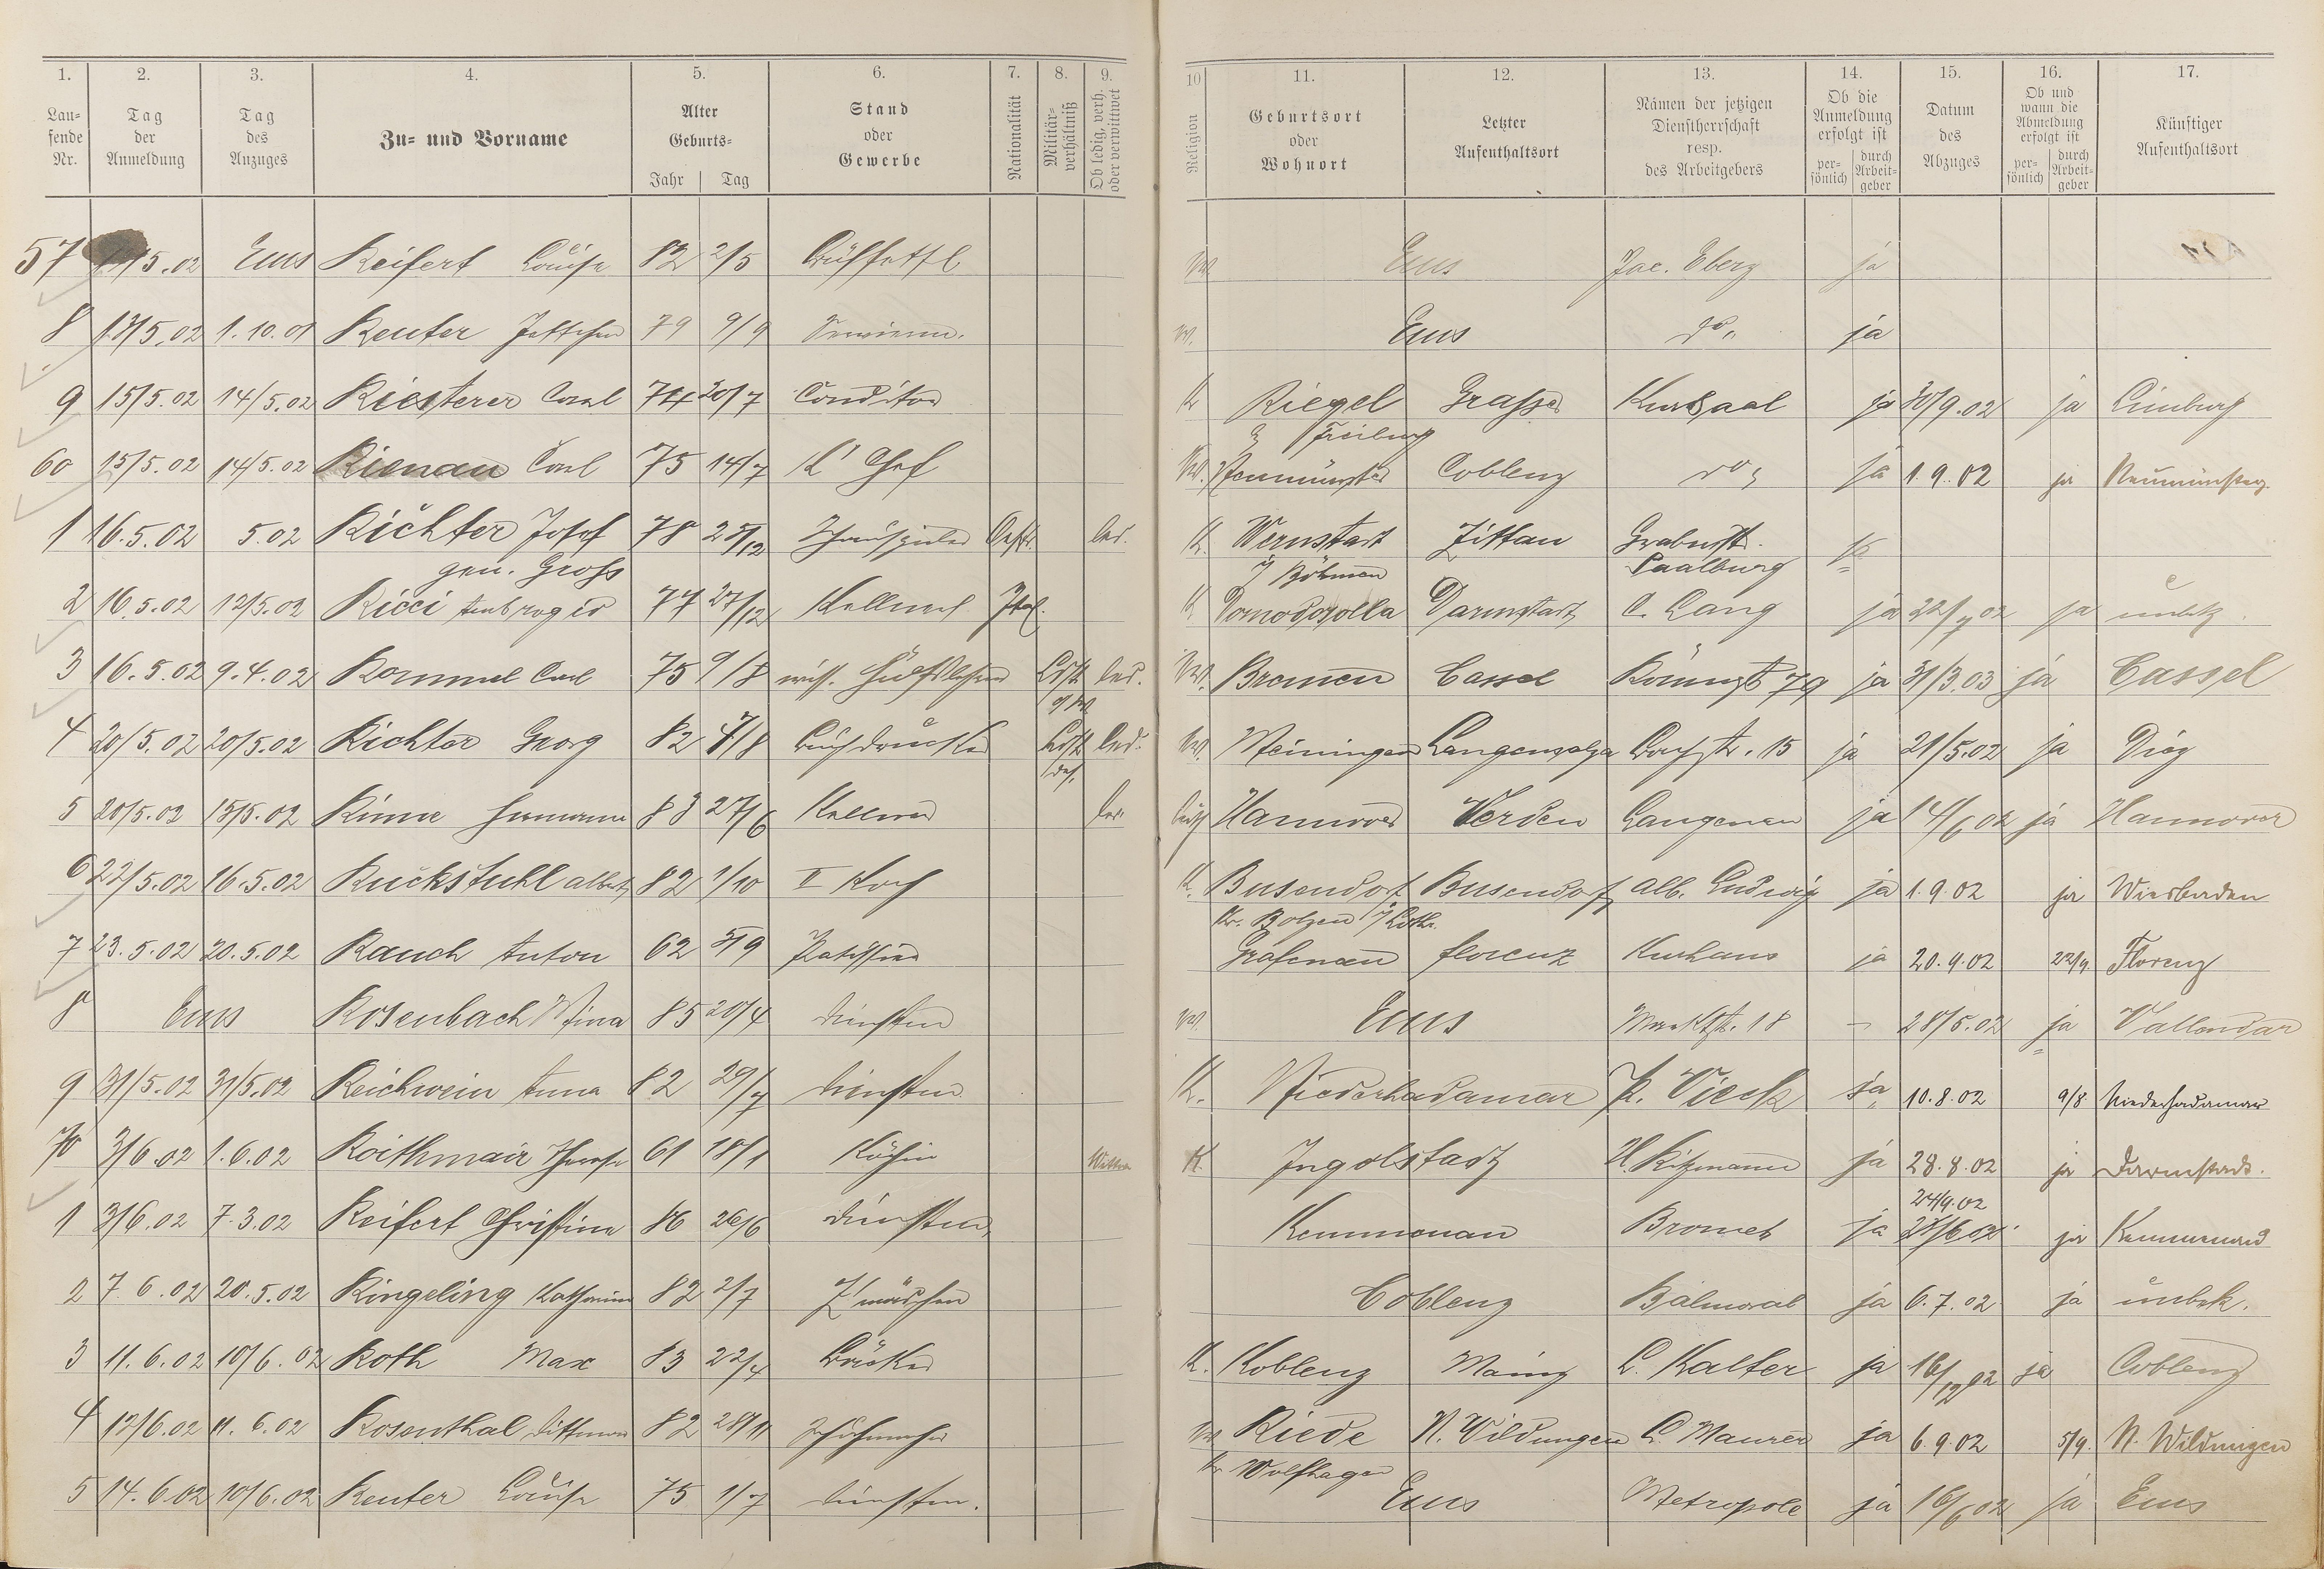 1. 2. 3. 4. 5. 6. 7. 8. 9. 10 11. 12. 13. 14. 15. 16. 17.
Lau-
fende
Nr.
Tag
der
Anmeldung
Tag
des
Anzuges
Zu- und Vorname
Alter
Geburts-
Jahr Tag
Stand
oder
Gewerbe
Nationalität
Militär-
verhältniß
Ob ledig, verh.
oder verwittwet
Religion
Geburtsort
oder
Wohnort
Letzter
Aufenthaltsort
Námen der jetzigen
Dienstherrschaft
resp.
des Arbeitgebers
Ob die
Anmeldung
erfolgt ist
per-
sönlich
durch
Arbeit-
geber
Datum
des
Abzuges
Ob und
wann die
Abmeldung
erfolgt ist
per-
sönlich
durch
Arbeit-
geber
Künftiger
Aufenthaltsort
57 /5.02 Ems Reifert Louise 82 2/5 Ems Jac. Eberz ja
8 13/5.02 1.10.01 Reuter Jettchen 79 9/9 Ems do ja
9 15/5.02 14/5.02 Riesterer Carl 74 20/7 Conditor K Riegel Kursaal ja 30/9.02 ja Limburg
Freiburg
60 15/5.02 14/5.02 Rienau Carl 75 14/7 Neumünster Coblenz do ja 1.9.02 ja Neumünster
1 16.5.02 5.02 Richter Josef 78 25/12 Schauspieler led. K. Wernstadt Zittau Grabenstr.
gen. Gross i/ Böhmen Saalburg
2 16.5.02 12/5.02 Ricci Ambrogio 77 27/12 Kellner Ital. K Domodosolla Darmstadt C. Lang ja 22/7 02 ja unbek.
3 16.5.02 9.4.02 Rommel Carl 75 9/8 wiss. Hülfslehrer Ldst. led. Bremen Cassel Römerst 79 ja 31/3.03 ja Cassel
4 20/5.02 20/5.02 Richter Georg 82 4/8 Buchdrucker Ldst. led. Meiningen Langensalza Bachstr. 15 ja 21/5.02 ja Diez
5 20/5.02 15/5.02 Rinne Hermann 83 27/6 Kellner led. Hannover Verden Langenau ja 14/6 02 ja Hannover
6 22/5.02 16.5.02 Ruckstuhl Albert 82 1/10 II Koch K. Busendorf Busendorf Alb. Ludwig ja 1.9.02 ja Wiesbaden
Kr. Bolzen i/ Lothr.
7 23.5.02 20.5.02 Rauch Anton 62 5/9 Patissier Grafenau Florenz Kurhaus ja 20.9.02 22/9. Florenz
8 Ems Rosenbach Mina 85 20/4 Dienstm Ems Marktstr. 18 – 28/5.02 ja Vallendar
9 31/5.02 31/5.02 Reichwein Anna 82 29/7 Dienstm K. Niederhadamar K. Vieck ja 10.8.02 9/8 Niederhadamar
70 3/6.02 1.6.02 Roithmair Therese 61 18/1 Köchin Wittwe K. Ingolstadt H. Kitzmann ja 28.8.02 ja Darmstadt.
1 3/6.02 7.3.02 Reifert Christine 86 26/6 Dienstm Kemmenau Bromet ja 24/9.02 ja Kemmenau
2 7.6.02 20.5.02 Ringeling Katharina 82 2/7 Z'mädchen Coblenz Balmoral ja 6.7.02 ja unbek.
3 11.6.02 10/6.02 Roth Max 83 22/4 Bäcker K. Koblenz Mainz L. Kalter ja 16/12 02 ja Coblenz
4 12/6.02 11.6.02 Rosenthal Dittmar 82 28/11 Schuhmacher Riede N. Wildungen L. Maurer ja 6.9.02 5/9. N. Wildungen
Kr Wolfhagen
5 14.6.02 10/6.02 Reuter Louise 75 1/7 Dienstm. Ems Metropole ja 16/6 02 ja Ems